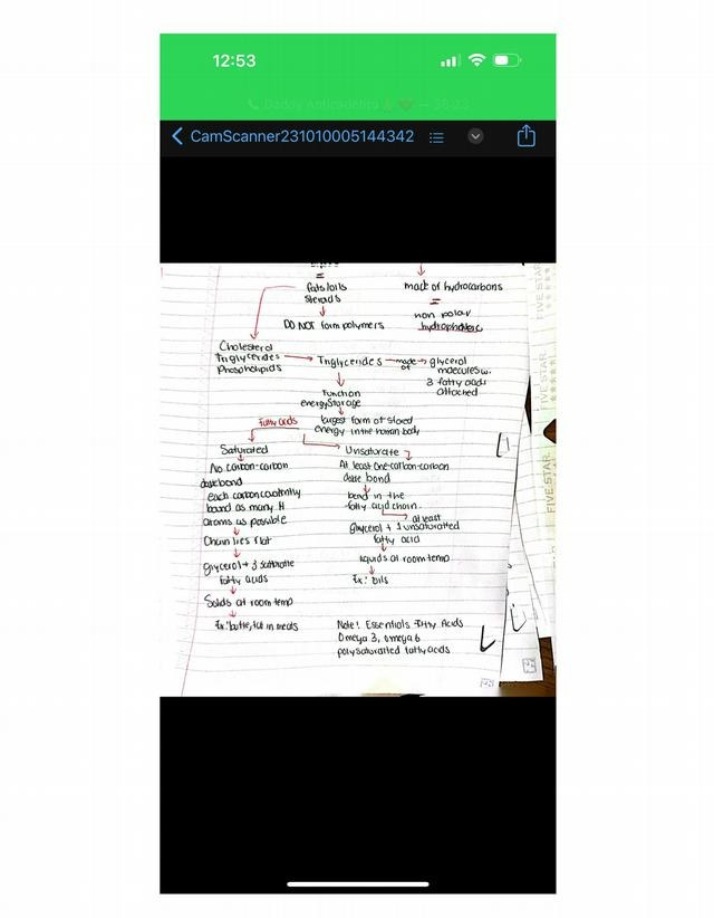 12:53
CamScanner231010005144342
fats/oils
steroids
made of hydrocarbons
=
=
non polar
hydrophobic
DO NOT form polymers
Cholesterol
Triglycerides
Phospholipids
Triglycerides made of glycerol
molecules w.
3 fatty acids
attached
Function
energy storage
largest form of stored
energy in the human body
Fatty acids
Saturated
No carbon-carbon
bond
each carbon covalently
bound as many H
atoms as possible
Chain lies flat
glycerol + 3
fatty acids
Solids at room temp
Ex: butter, fat in meats
Unsaturate
At least one-carbon-carbon
bond
bend in the
fatty acid chain
at least
Glycerol + 1 unsaturated
fatty acid
liquids at room temp
Ex: oils
Note! Essentials Fatty Acids
Omega 3, omega 6
fatty acids
FIVE STAR
FIVE STAR
FIVE STAR